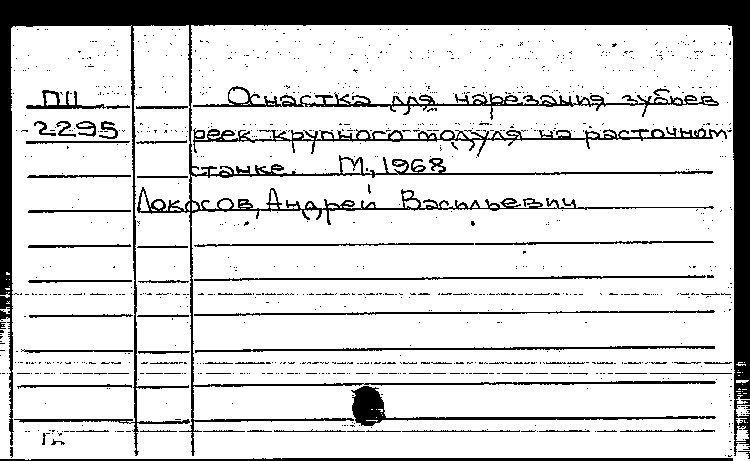 ПП Оснастка для нарезания зубьев
2295 реек крупного модуля на расточном
станке. М., 1968
Локосов, Андрей Васильевич